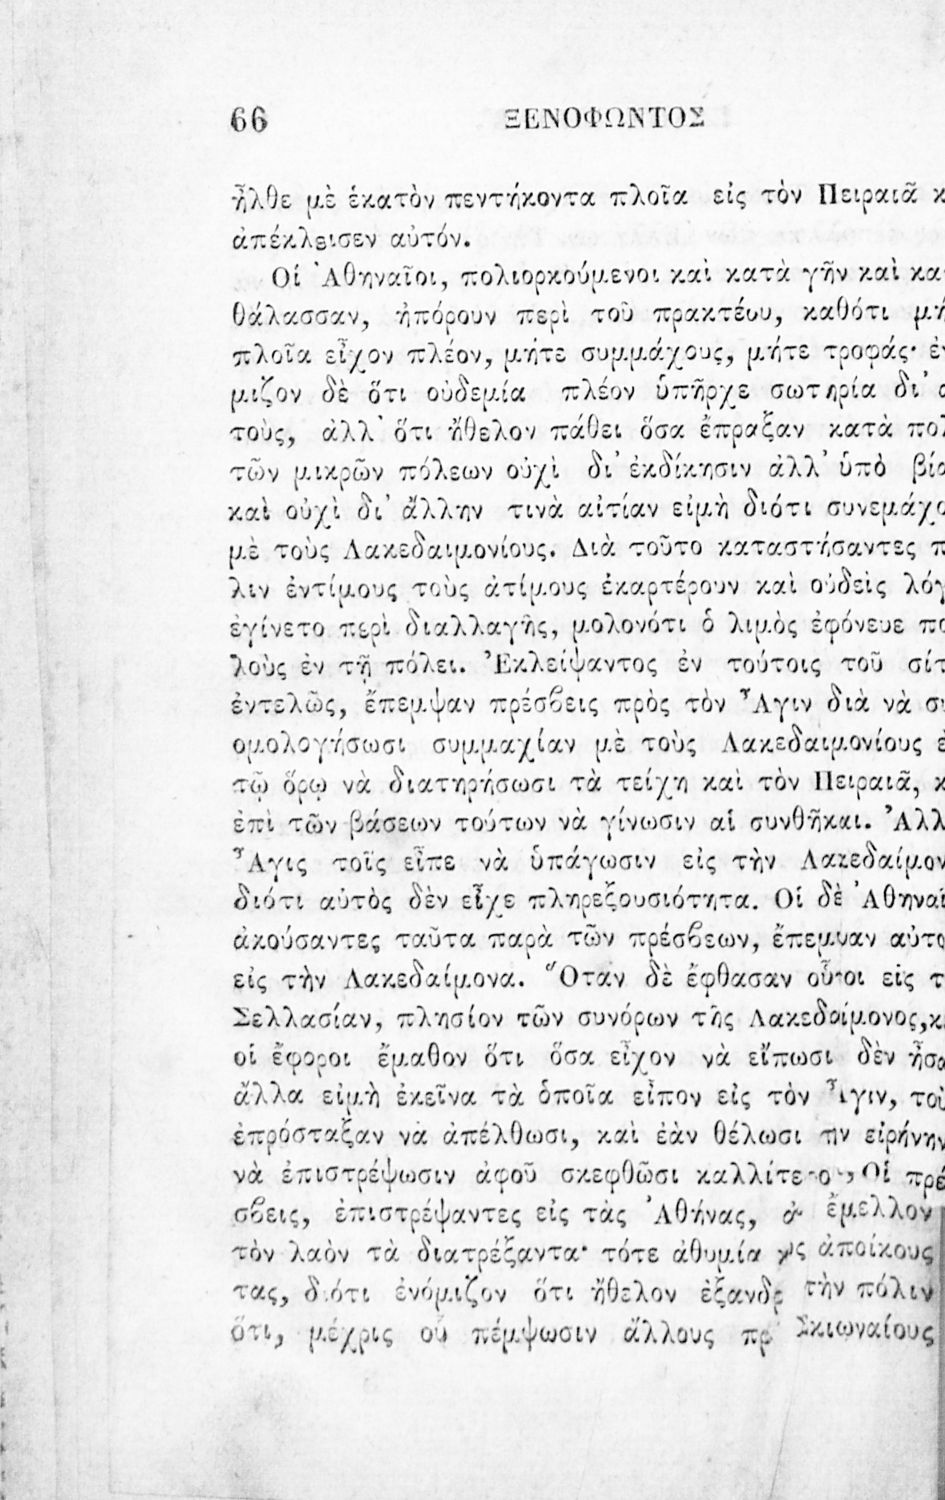 66 ΞΕΝΟΦΩΝΤΟΣ
ἦλθε μὲ ἑκατὸν πεντήκοντα πλοῖα εἰς τὸν Πειραιᾶ
ἀπέκλεισεν αὐτόν.
Οἱ Ἀθηναῖοι, πολιορκούμενοι καὶ κατὰ γῆν καὶ κα-
θάλασσαν, ἠπόρουν περὶ τοῦ πρακτέου, καθότι
πλοῖα εἶχον πλέον, μήτε συμμάχους, μήτε τροφάς·
μιζον δὲ ὅτι οὐδεμία πλέον ὑπῆρχε σωτηρία δι'
τοὺς, ἀλλ' ὅτι ἤθελον πάθει ὅσα ἔπραξαν κατὰ
τῶν μικρῶν πόλεων οὐχὶ δι' ἐκδίκησιν ἀλλ' ὑπὸ
καὶ οὐχὶ δι' ἄλλην τινὰ αἰτίαν εἰμὴ διότι συνεμάχο
μὲ τοὺς Λακεδαιμονίους. Διὰ τοῦτο καταστήσαντες
λιν ἐντίμους τοὺς ἀτίμους ἐκαρτέρουν καὶ οὐδεὶς
ἐγίνετο περὶ διαλλαγῆς, μολονότι ὁ λιμὸς ἐφόνευε
λοὺς ἐν τῇ πόλει. Ἐκλείψαντος ἐν τούτοις τοῦ
ἐντελῶς, ἔπεμψαν πρέσβεις πρὸς τὸν Ἆγιν διὰ νὰ
ομολογήσωσι συμμαχίαν μὲ τοὺς Λακεδαιμονίους
τῷ ὅρῳ νὰ διατηρήσωσι τὰ τείχη καὶ τὸν Πειραιᾶ,
ἐπὶ τῶν βάσεων τούτων νὰ γίνωσιν αἱ συνθῆκαι. Ἀλλ
Ἆγις τοῖς εἶπε νὰ ὑπάγωσιν εἰς τὴν Λακεδαίμον
διότι αὐτὸς δὲν εἶχε πληρεξουσιότητα. Οἱ δὲ Ἀθηναῖ
ἀκούσαντες ταῦτα παρὰ τῶν πρέσβεων, ἔπεμψαν
εἰς τὴν Λακεδαίμονα. Ὅταν δὲ ἔφθασαν οὗτοι εἰς
Σελλασίαν, πλησίον τῶν συνόρων τῆς Λακεδαίμονος,
οἱ ἔφοροι ἔμαθον ὅτι ὅσα εἶχον νὰ εἴπωσι δὲν
ἄλλα εἰμὴ ἐκεῖνα τὰ ὁποῖα εἶπον εἰς τὸν Ἆγιν,
ἐπρόσταξαν νὰ ἀπέλθωσι, καὶ ἐὰν θέλωσι εἰρήνην
νὰ ἐπιστρέψωσιν ἀφοῦ σκεφθῶσι Οἱ πρέ
σβεις, ἐπιστρέψαντες εἰς τὰς Ἀθήνας, ἔμελλον
τὸν λαὸν τὰ διατρέξαντα· τότε ἀθυμία ἀποίκους
τας, διότι ἐνόμιζον ὅτι ἤθελον τὴν πόλιν
ὅτι, μέχρις οὗ πέμψωσιν ἄλλους Σκιωναίους